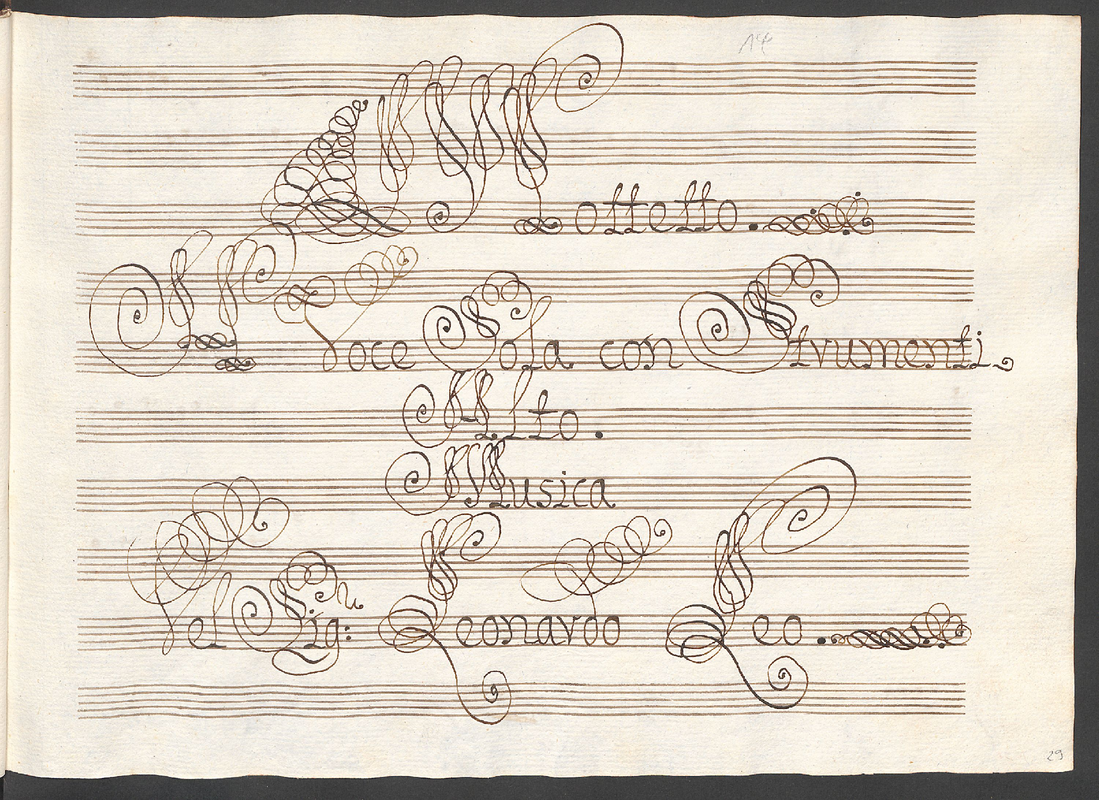 Mottetto.
A Voce Sola con Strumenti
Alto.
Musica
Del Sig:r Leonardo Leo.
29